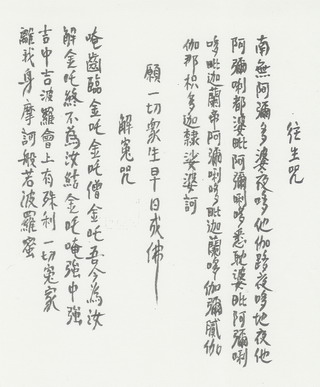 往生咒
南無阿彌多婆夜哆他伽跢夜哆地夜他
阿彌唎都婆毗阿彌唎哆悉耽婆毗阿彌唎
哆毗迦蘭帝阿彌唎哆毗迦蘭哆伽彌膩伽
伽那枳多迦隸娑婆訶
願一切眾生早日成佛
解冤咒
唵齒臨金吒金吒僧金吒吾今為汝
解金吒終不為汝結金吒唵強中強
吉中吉波羅會上有殊利一切冤家
離我身摩訶般若波羅蜜